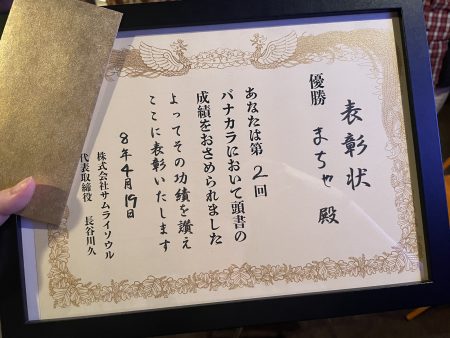 表彰状
優勝 まちゃ 殿
あなたは第2回
バナカラにおいて頭書の
成績をおさめられました
よってその功績を讃え
ここに表彰いたします
8年4月19日
株式会社サムライソウル
代表取締役 長谷川久